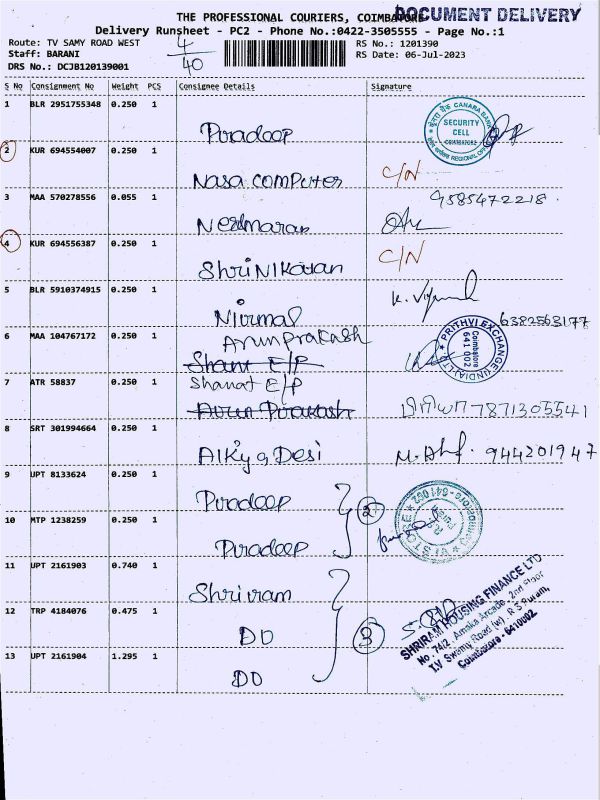 THE PROFESSIONAL COURIERS, COIMBATORE
DOCUMENT DELIVERY
Delivery Runsheet - PC2 - Phone No.:0422-3505555 - Page No.:1
Route: TV SAMY ROAD WEST
4/40
RS No.: 1201390
Staff: BARANI
RS Date: 06-Jul-2023
DRS No.: DCJB120139001
S No Consignment No Weight PCS Consignee Details Signature
1 BLR 2951755348 0.250 1
Pradeep
CANARA BANK
SECURITY
CELL
COIMBATORE
REGIONAL
2 KUR 694554007 0.250 1
Nasa Computer C/N
3 MAA 570278556 0.055 1
Nedmaran
9585472218
4 KUR 694556387 0.250 1
ShriNikatan C/N
5 BLR 5910374915 0.250 1
Nirmal
6382563177
6 MAA 104767172 0.250 1
Arun Prakash
Sharat E/P
PRITHVI EXCHANGE (INDIA) LTD
Coimbatore
641 002
7 ATR 58837 0.250 1
Sharat E/P
Arun Prakash
7871305541
8 SRT 301994664 0.250 1
Alkya Desi
944201947
9 UPT 8133624 0.250 1
Pradeep
2
10 MTP 1238259 0.250 1
Pradeep
11 UPT 2161903 0.740 1
Shriram
12 TRP 4184076 0.475 1
DO
3
13 UPT 2161904 1.295 1
DO
SHRIRAM HOUSING FINANCE LTD
No. 74/2, Amska Arcade, 2nd Floor
T.V Swamy Road (w), R S Puram,
Coimbatore - 6410002